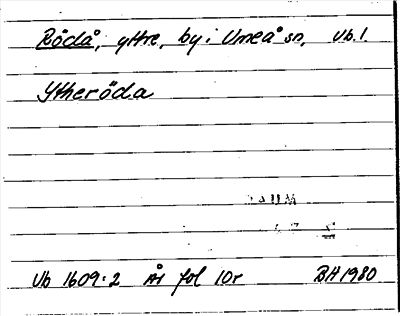 Rödå, yttre, by i Umeå sn, Vb. l.
Ytheröda
Vb 1609:2 ÅI fol 10r BH 1980